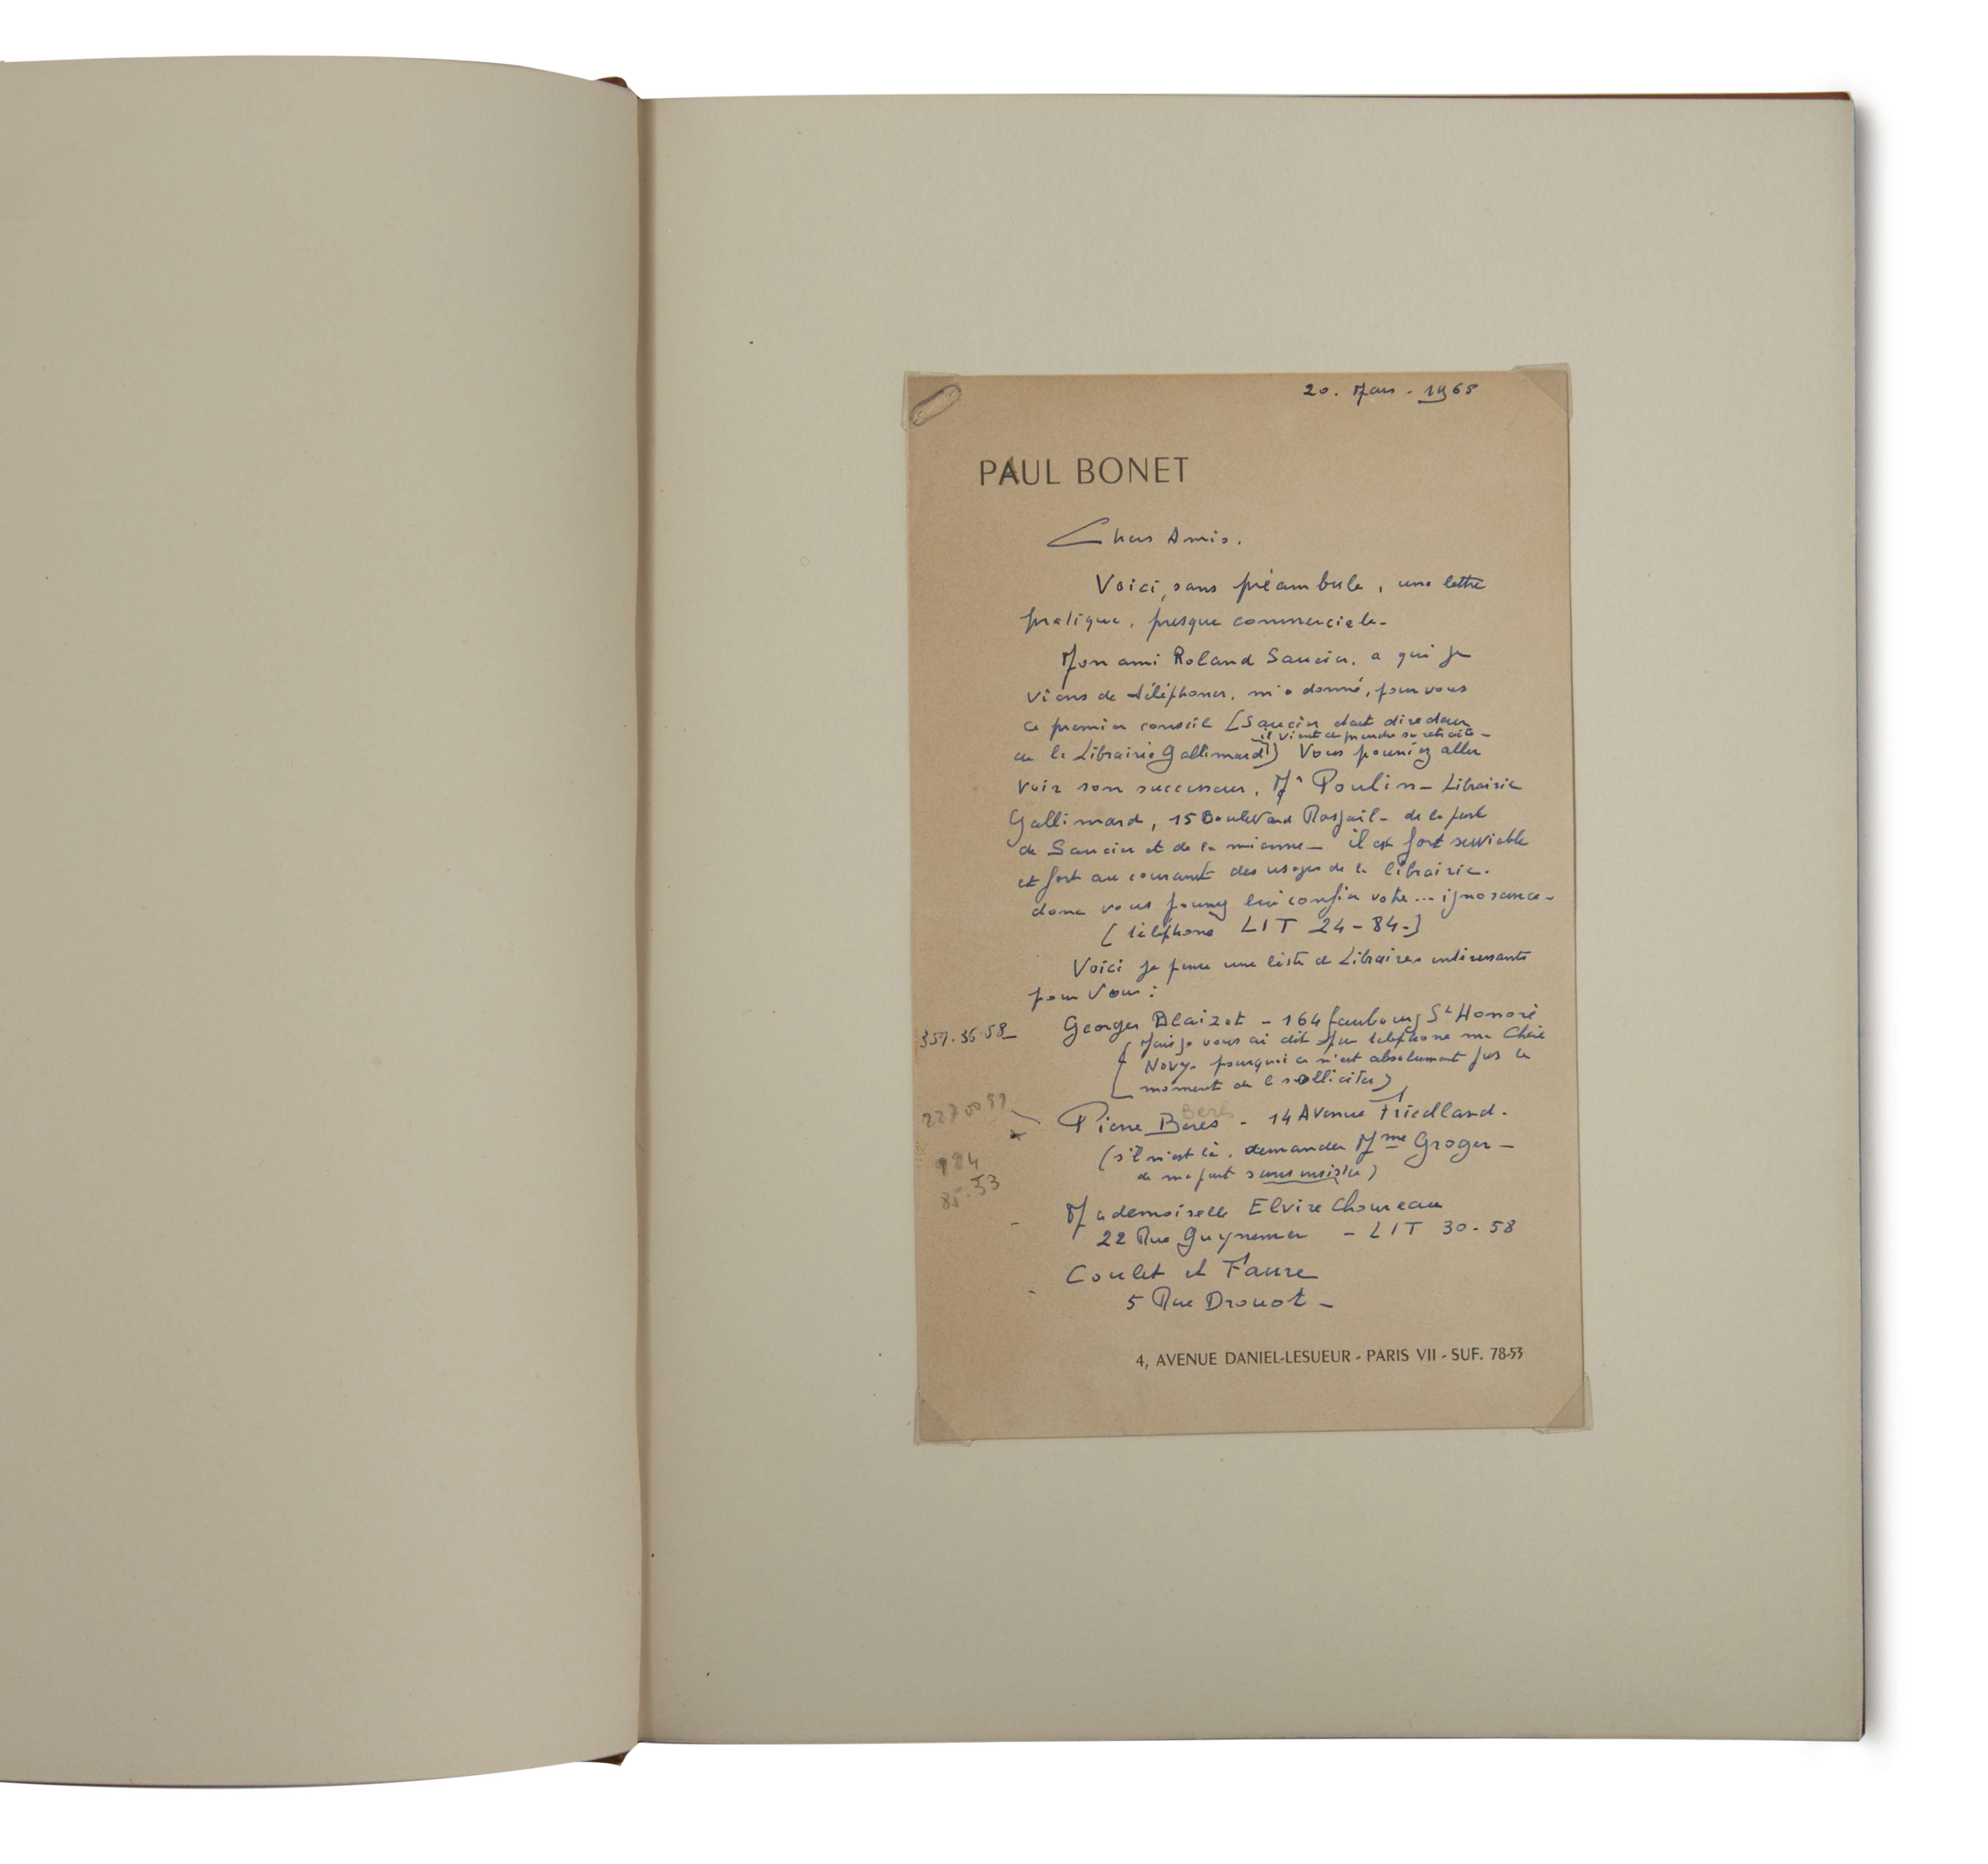 20. Mars - 1965
PAUL BONET
Chers Amis.
Voici, sans préambule, une lettre
pratique, presque commerciale.
Mon ami Roland Saucier, a qui je
viens de téléphoner, m'a donné, pour vous
ce premier conseil [Saucier était directeur
il vient de prendre sa retraite -
de la Librairie Gallimard]) Vous pourriez aller
voir son successeur, Mr Poulin - Librairie
Gallimard, 15 Boulevard Raspail - de la part
de Saucier et de la mienne - il est fort serviable
et fort au courant des usages de la librairie.
donc vous pouvez lui confier votre... ignorance -
[téléphone LIT 24-84-]
Voici je pense une liste de Libraires intéressants
pour Vous :
357.36-58- Georges Blaizot - 164 faubourg St Honoré
(Mais je vous ai dit par téléphone ma Chère
Novy. pourquoi ce n'est absolument pas le
moment de le solliciter)
2270099
Berès
Pierre Berès - 14 Avenue Friedland.
(s'il n'est là, demander Mme Groger -
de ma part sans insister)
924
85.53
Mademoiselle Elvire Choureau
22 Rue Guynemer - LIT 30-58
Coulet et Faure
5 Rue Drouot -
4, AVENUE DANIEL-LESUEUR - PARIS VII - SUF. 78-53